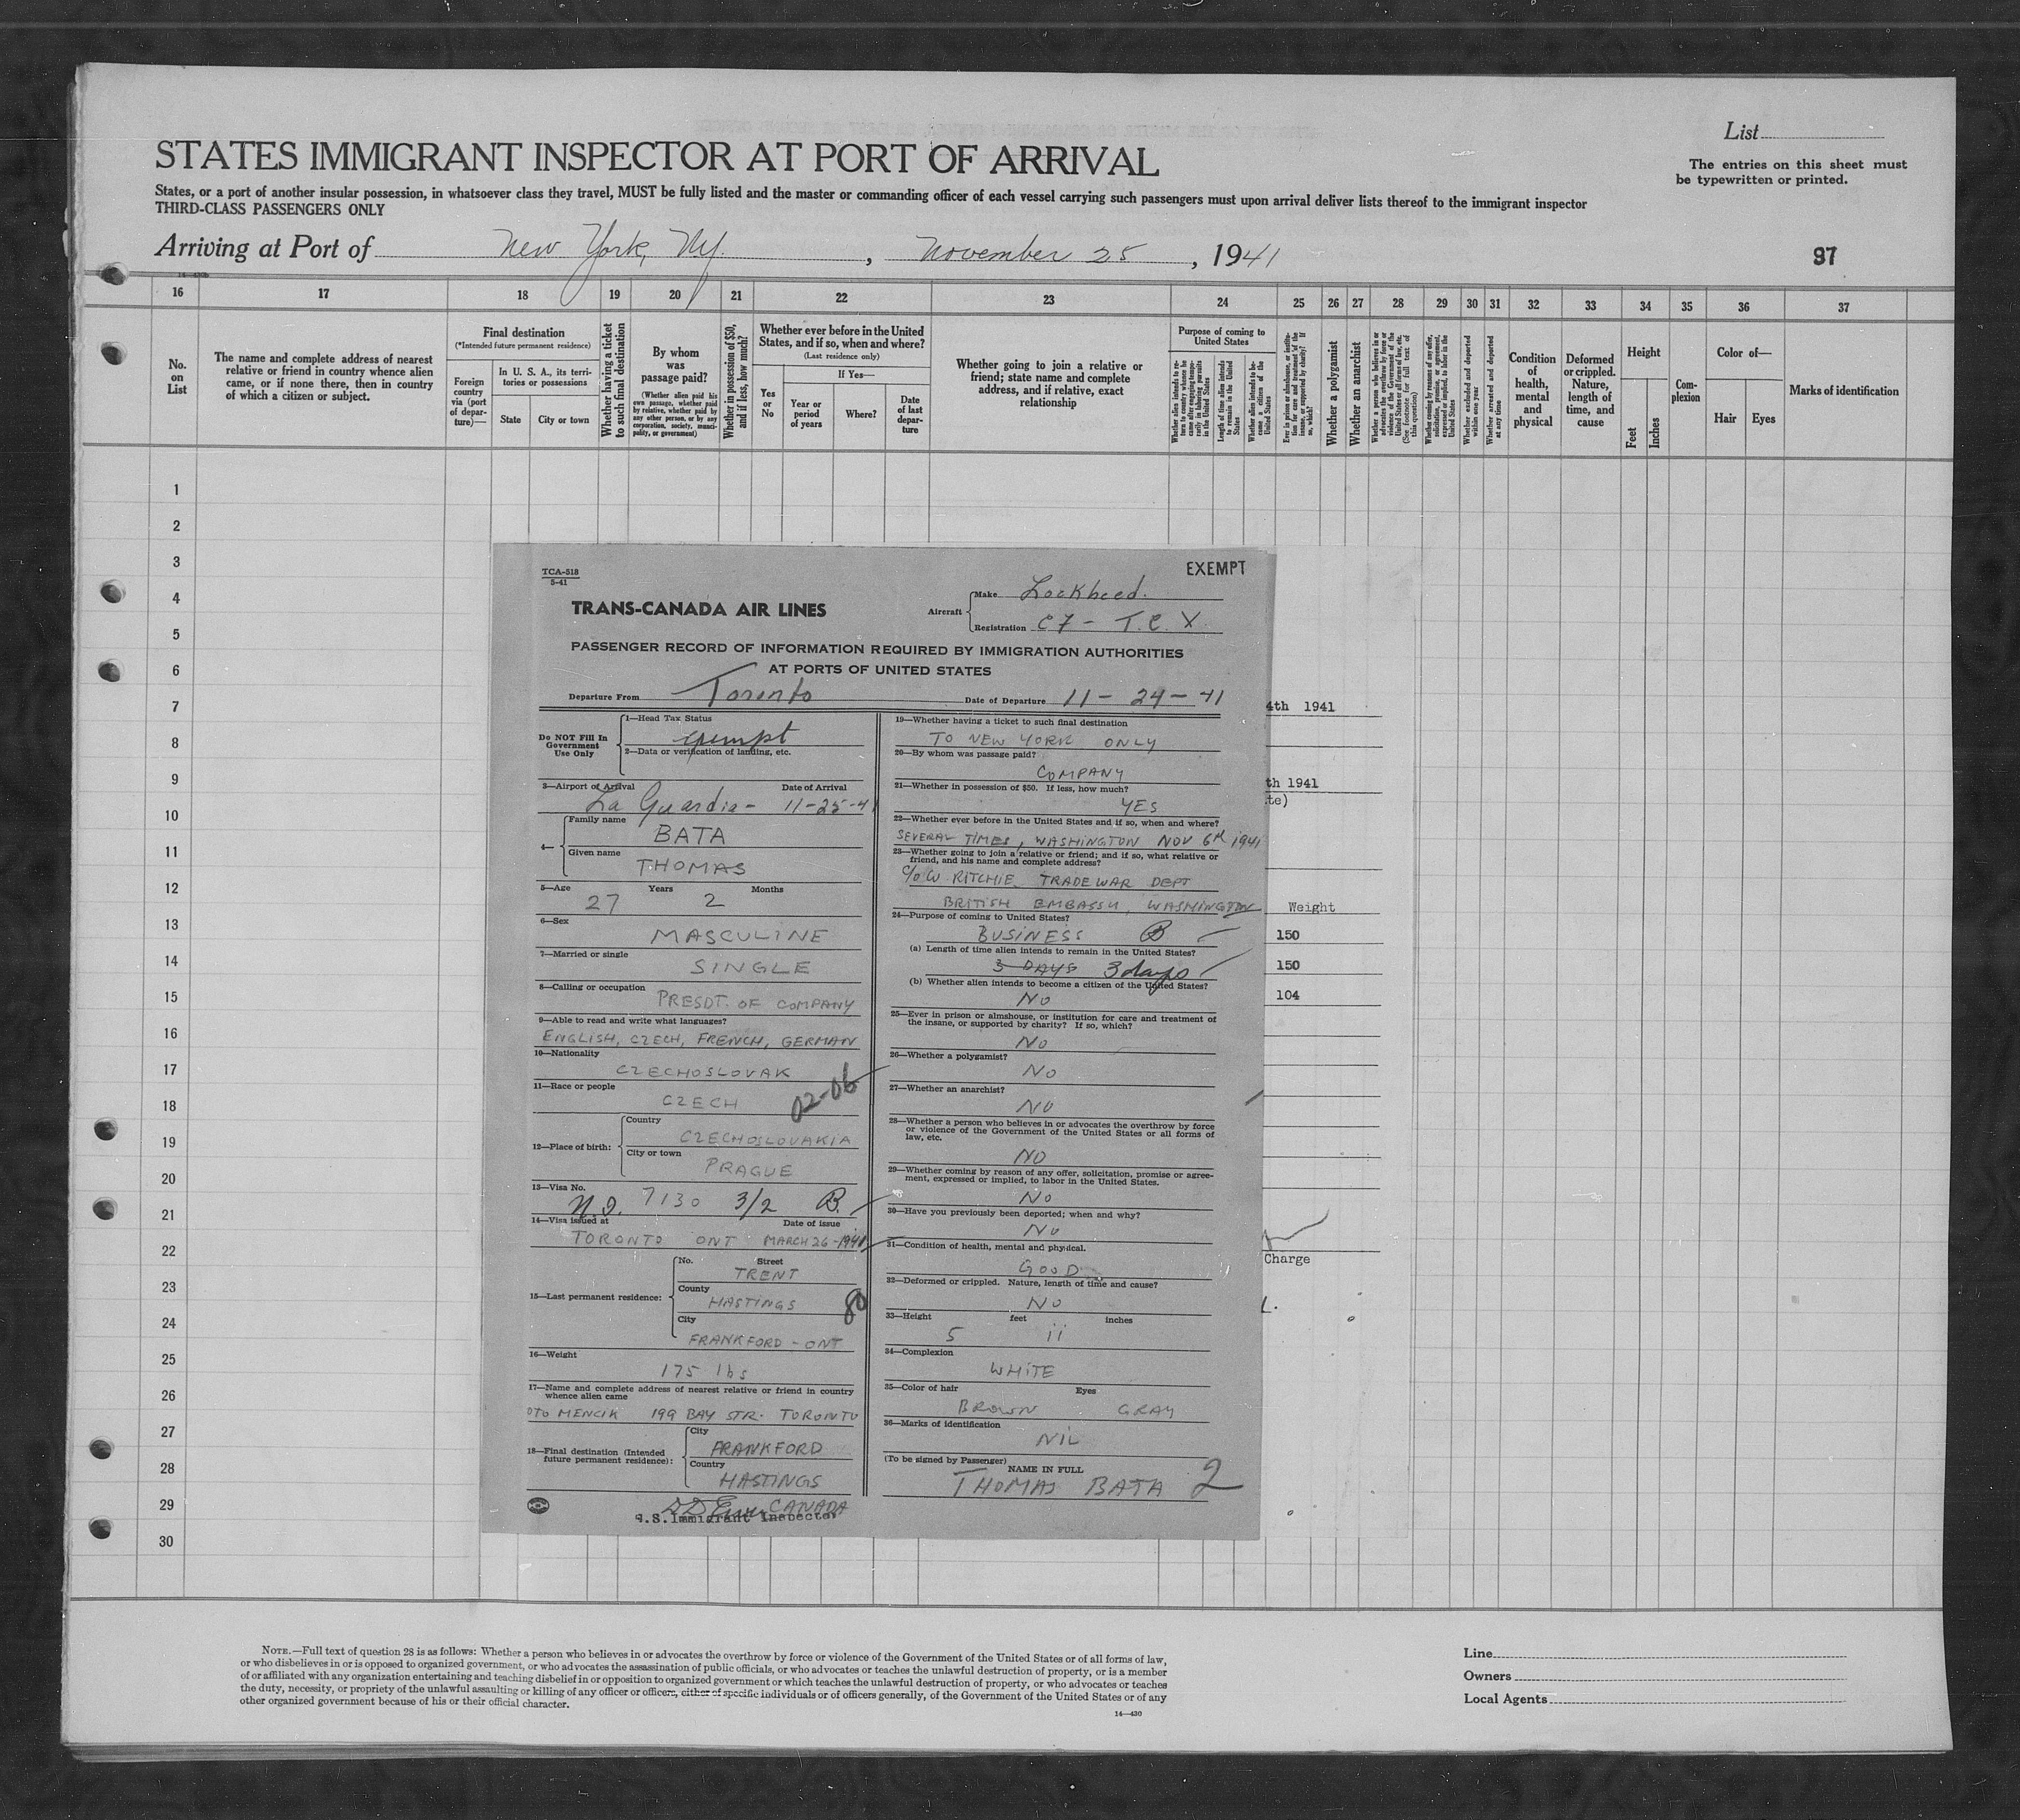 List
The entries on this sheet must
be typewritten or printed.
STATES IMMIGRANT INSPECTOR AT PORT OF ARRIVAL
States, or a port of another insular possession, in whatsoever class they travel, MUST be fully listed and the master or commanding officer of each vessel carrying such passengers must upon arrival deliver lists thereof to the immigrant inspector
THIRD-CLASS PASSENGERS ONLY
Arriving at Port of New York, Ny. , November 25 , 1941
97
14-430b
16 17 18 19 20 21 22 23 24 25 26 27 28 29 30 31 32 33 34 35 36 37
No. on List
The name and complete address of nearest
relative or friend in country whence alien
came, or if none there, then in country
of which a citizen or subject.
Final destination
(*Intended future permanent residence)
Foreign
country
via (port
of depar-
ture)—
In U. S. A., its terri-
tories or possessions
State
City or town
Whether having a ticket
to such final destination
By whom
was
passage paid?
(Whether alien paid his
own passage, whether paid
by relative, whether paid by
any other person, or by any
corporation, society, munici-
pality, or government)
Whether in possession of $50,
and if less, how much?
Whether ever before in the United
States, and if so, when and where?
(Last residence only)
Yes
or
No
If Yes—
Year or
period
of years
Where?
Date
of last
depar-
ture
Whether going to join a relative or
friend; state name and complete
address, and if relative, exact
relationship
Purpose of coming to
United States
Whether alien intends to re-
turn to country whence he
came after engaging tempo-
rarily in laboring pursuits
in the United States
Length of time alien intends
to remain in the United
States
Whether alien intends to be-
come a citizen of the
United States
Ever in prison or almshouse, or institu-
tion for care and treatment of the
insane, or supported by charity? If
so, which?
Whether a polygamist
Whether an anarchist
Whether a person who believes in or
advocates the overthrow by force or
violence of the Government of the
United States or all forms of law, etc.
(See footnote for full text of
this question)
Whether coming by reasons of any offer,
solicitation, promise, or agreement,
expressed or implied, to labor in the
United States
Whether excluded and deported
within one year
Whether arrested and deported
at any time
Condition
of
health,
mental
and
physical
Deformed
or crippled.
Nature,
length of
time, and
cause
Height
Feet
Inches
Com-
plexion
Color of—
Hair
Eyes
Marks of identification
1
2
3
4
5
6
7
8
9
10
11
12
13
14
15
16
17
18
19
20
21
22
23
24
25
26
27
28
29
30
TCA-518
5-41
EXEMPT
TRANS-CANADA AIR LINES
Aircraft
Make Lockheed.
Registration CF - T.C.X.
PASSENGER RECORD OF INFORMATION REQUIRED BY IMMIGRATION AUTHORITIES
AT PORTS OF UNITED STATES
Departure From Toronto Date of Departure 11-24-41
Do NOT Fill In
Government
Use Only
1—Head Tax Status
exempt
2—Data or verification of landing, etc.
3—Airport of Arrival Date of Arrival
La Guardia - 11-25-41
4—
Family name
BATA
Given name
THOMAS
5—Age Years Months
27 2
6—Sex
MASCULINE
7—Married or single
SINGLE
8—Calling or occupation
PRESDT. OF COMPANY
9—Able to read and write what languages?
ENGLISH, CZECH, FRENCH, GERMAN
10—Nationality
CZECHOSLOVAK
11—Race or people
CZECH
02-06
12—Place of birth:
Country
CZECHOSLOVAKIA
City or town
PRAGUE
13—Visa No.
N.I. 7130 3/2 B.
14—Visa issued at Date of issue
TORONTO ONT MARCH 26-1941
15—Last permanent residence:
No. Street
TRENT
County
HASTINGS
80
City
FRANKFORD - ONT
16—Weight
175 lbs
17—Name and complete address of nearest relative or friend in country
whence alien came
OTO MENCIK 199 BAY STR. TORONTO
18—Final destination (Intended
future permanent residence):
City
FRANKFORD
Country
HASTINGS
CANADA
U.S. Immigrant Inspector
19—Whether having a ticket to such final destination
TO NEW YORK ONLY
20—By whom was passage paid?
COMPANY
21—Whether in possession of $50. If less, how much?
YES
22—Whether ever before in the United States and if so, when and where?
SEVERAL TIMES, WASHINGTON NOV 6th 1941
23—Whether going to join a relative or friend; and if so, what relative or
friend, and his name and complete address?
c/o W. RITCHIE. TRADE WAR DEPT
BRITISH EMBASSY, WASHINGTON
24—Purpose of coming to United States?
BUSINESS B
(a) Length of time alien intends to remain in the United States?
3 DAYS 3 days
(b) Whether alien intends to become a citizen of the United States?
NO
25—Ever in prison or almshouse, or institution for care and treatment of
the insane, or supported by charity? If so, which?
NO
26—Whether a polygamist?
NO
27—Whether an anarchist?
NO
28—Whether a person who believes in or advocates the overthrow by force
or violence of the Government of the United States or all forms of
law, etc.
NO
29—Whether coming by reason of any offer, solicitation, promise or agree-
ment, expressed or implied, to labor in the United States.
NO
30—Have you previously been deported; when and why?
NO
31—Condition of health, mental and physical.
GOOD
32—Deformed or crippled. Nature, length of time and cause?
NO
33—Height feet inches
5 11
34—Complexion
WHITE
35—Color of hair Eyes
BROWN GRAY
36—Marks of identification
NIL
(To be signed by Passenger)
NAME IN FULL
THOMAS BATA 2
4th 1941
th 1941
te)
Weight
150
150
104
Charge
NOTE.—Full text of question 28 is as follows: Whether a person who believes in or advocates the overthrow by force or violence of the Government of the United States or of all forms of law,
or who disbelieves in or is opposed to organized government, or who advocates the assassination of public officials, or who advocates or teaches the unlawful destruction of property, or is a member
of or affiliated with any organization entertaining and teaching disbelief in or opposition to organized government or which teaches the unlawful destruction of property, or who advocates or teaches
the duty, necessity, or propriety of the unlawful assaulting or killing of any officer or officers, either of specific individuals or of officers generally, of the Government of the United States or of any
other organized government because of his or their official character.
14—430
Line
Owners
Local Agents